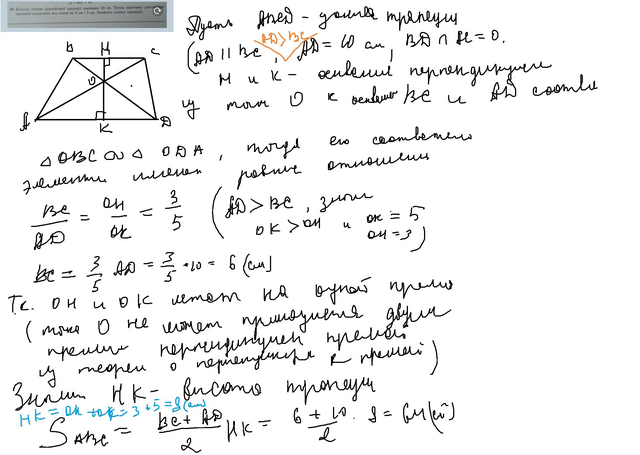 Пусть ABCD - данная трапеция
AD > BC
(AD || BC, AD = 10 см, BD ∩ AC = O.
H и K - основания перпендикуляров
из точки O к основаниям BC и AD соотв
B H C
O
A K D
△ OBC ∾ △ ODA, тогда его соответств
элементы имеют равные отношения
BC/AD = OH/OK = 3/5 (AD > BC, значит
OK > OH и OK = 5
OH = 3)
BC = 3/5 AD = 3/5 · 10 = 6 (см)
Т.к. OH и OK лежат на одной прямой
(точка O не может двумя
прямыми перпендикуляр прямой
из теоремы о перпендикуляре к прямой)
Значит HK - высота трапеции
HK = OH + OK = 3 + 5 = 8 (см)
S ABC = BC + AD/2 HK = 6 + 10/2 · 8 = 64 (см²)